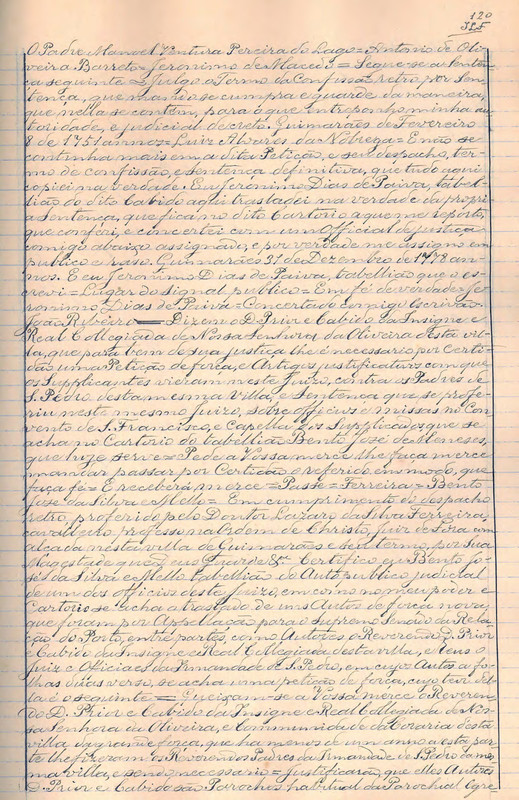 120
JLF
O Padre Manoel Ventura Pereira do Lago = Antonio de Oli-
veira Barreto = Jeronimo de Macedo = Segue-se a senten-
ça seguinte = Julgo o Termo da Confissão retro por Sen-
tença, que mando se cumpra e guarde da maneira,
que nella se contém, para o que interponho minha au
toridade, e judicial decreto. Guimarães de Fevereiro
8 de 1751 annos = Luiz Alvares da Nobrega = E não se
continha mais em a dita Petição, e seu despacho, ter-
mo de confissão, e sentença definitiva, que tudo aqui
copiei na verdade. Eu Jeronimo Dias de Paiva, tabel-
lião do dito Cabido aqui trasladei na verdade da propri-
a Sentença, que fica no dito Cartorio a que me reporto,
que conferi, e concertei com um Official de justiça
comigo abaixo assignado, e por verdade me assigno em
publico e raso. Guimarães 31 de Dezembro de 1778 an-
nos. E eu Jeronimo Dias de Paiva, tabellião que o es-
crevi = Lugar do Signal publico = Em fé de verdade Je-
ronimo Dias de Paiva = Concertado comigo Escrivão
João Ribeiro = Dizem o D. Prior e Cabido da Insigne e
Real Collegiada de Nossa Senhora da Oliveira d'esta vil-
la, que para bem de sua justiça lhe é necessario por Certi-
dão uma Petição de força, e Artigos justificativos com que
os Supplicantes vieram neste Juizo, contra os Padres de
S. Pedro desta mesma Villa, e Sentença que se profe-
riu neste mesmo juizo, sobre officios e missas no Con-
vento de S. Francisco, e Capella dos Supplicados, que se
acha no Cartorio do tabellião Bento José de Meneses,
que hoje serve = Pede a Vossa merce lhe faça merce
mandar passar por Certidão o referido em modo, que
faça fé = E receberá merce = Passe = Ferreira = Bento
José da Silva e Mello = Em cumprimento do despacho
retro, proferido pelo Doutor Lazaro da Silva Ferreira,
cavalleiro professo na Ordem de Christo, Juiz de Fóra com
alçada nesta villa de Guimarães e seu termo, por Sua
Magestade que Deus Guarde &c. Certifico eu Bento Jo-
sé da Silva e Mello tabellião do Auto publico judicial
de um dos officios deste juizo, em como no meu poder e
Cartorio se acha o traslado de uns Autos de força nova,
que foram por Appellação para o Supremo Senado da Rela-
ção do Porto, entre partes, como Autores o Reverendo D. Prior
e Cabido da Insigne e Real Collegiada desta villa, e Reus o
Juiz e Officiaes da Irmandade de S. Pedro, em cujos Autos a fo-
lhas duas verso, se acha uma petição de força, cujo teor del-
la é o seguinte = Queixam-se a Vossa merce o Reveren-
do D. Prior e Cabido da Insigne e Real Collegiada de Nos-
sa Senhora da Oliveira, e Communidade da Coraria desta
villa da grande força, que ha menos de um anno a esta par-
te lhe fizeram os Reverendos Padres da Irmandade de S. Pedro da mes-
ma villa, e sendo necessario = Justificarão, que elles Autores
D. Prior e Cabido são Parochos habitual da Parochial Igre